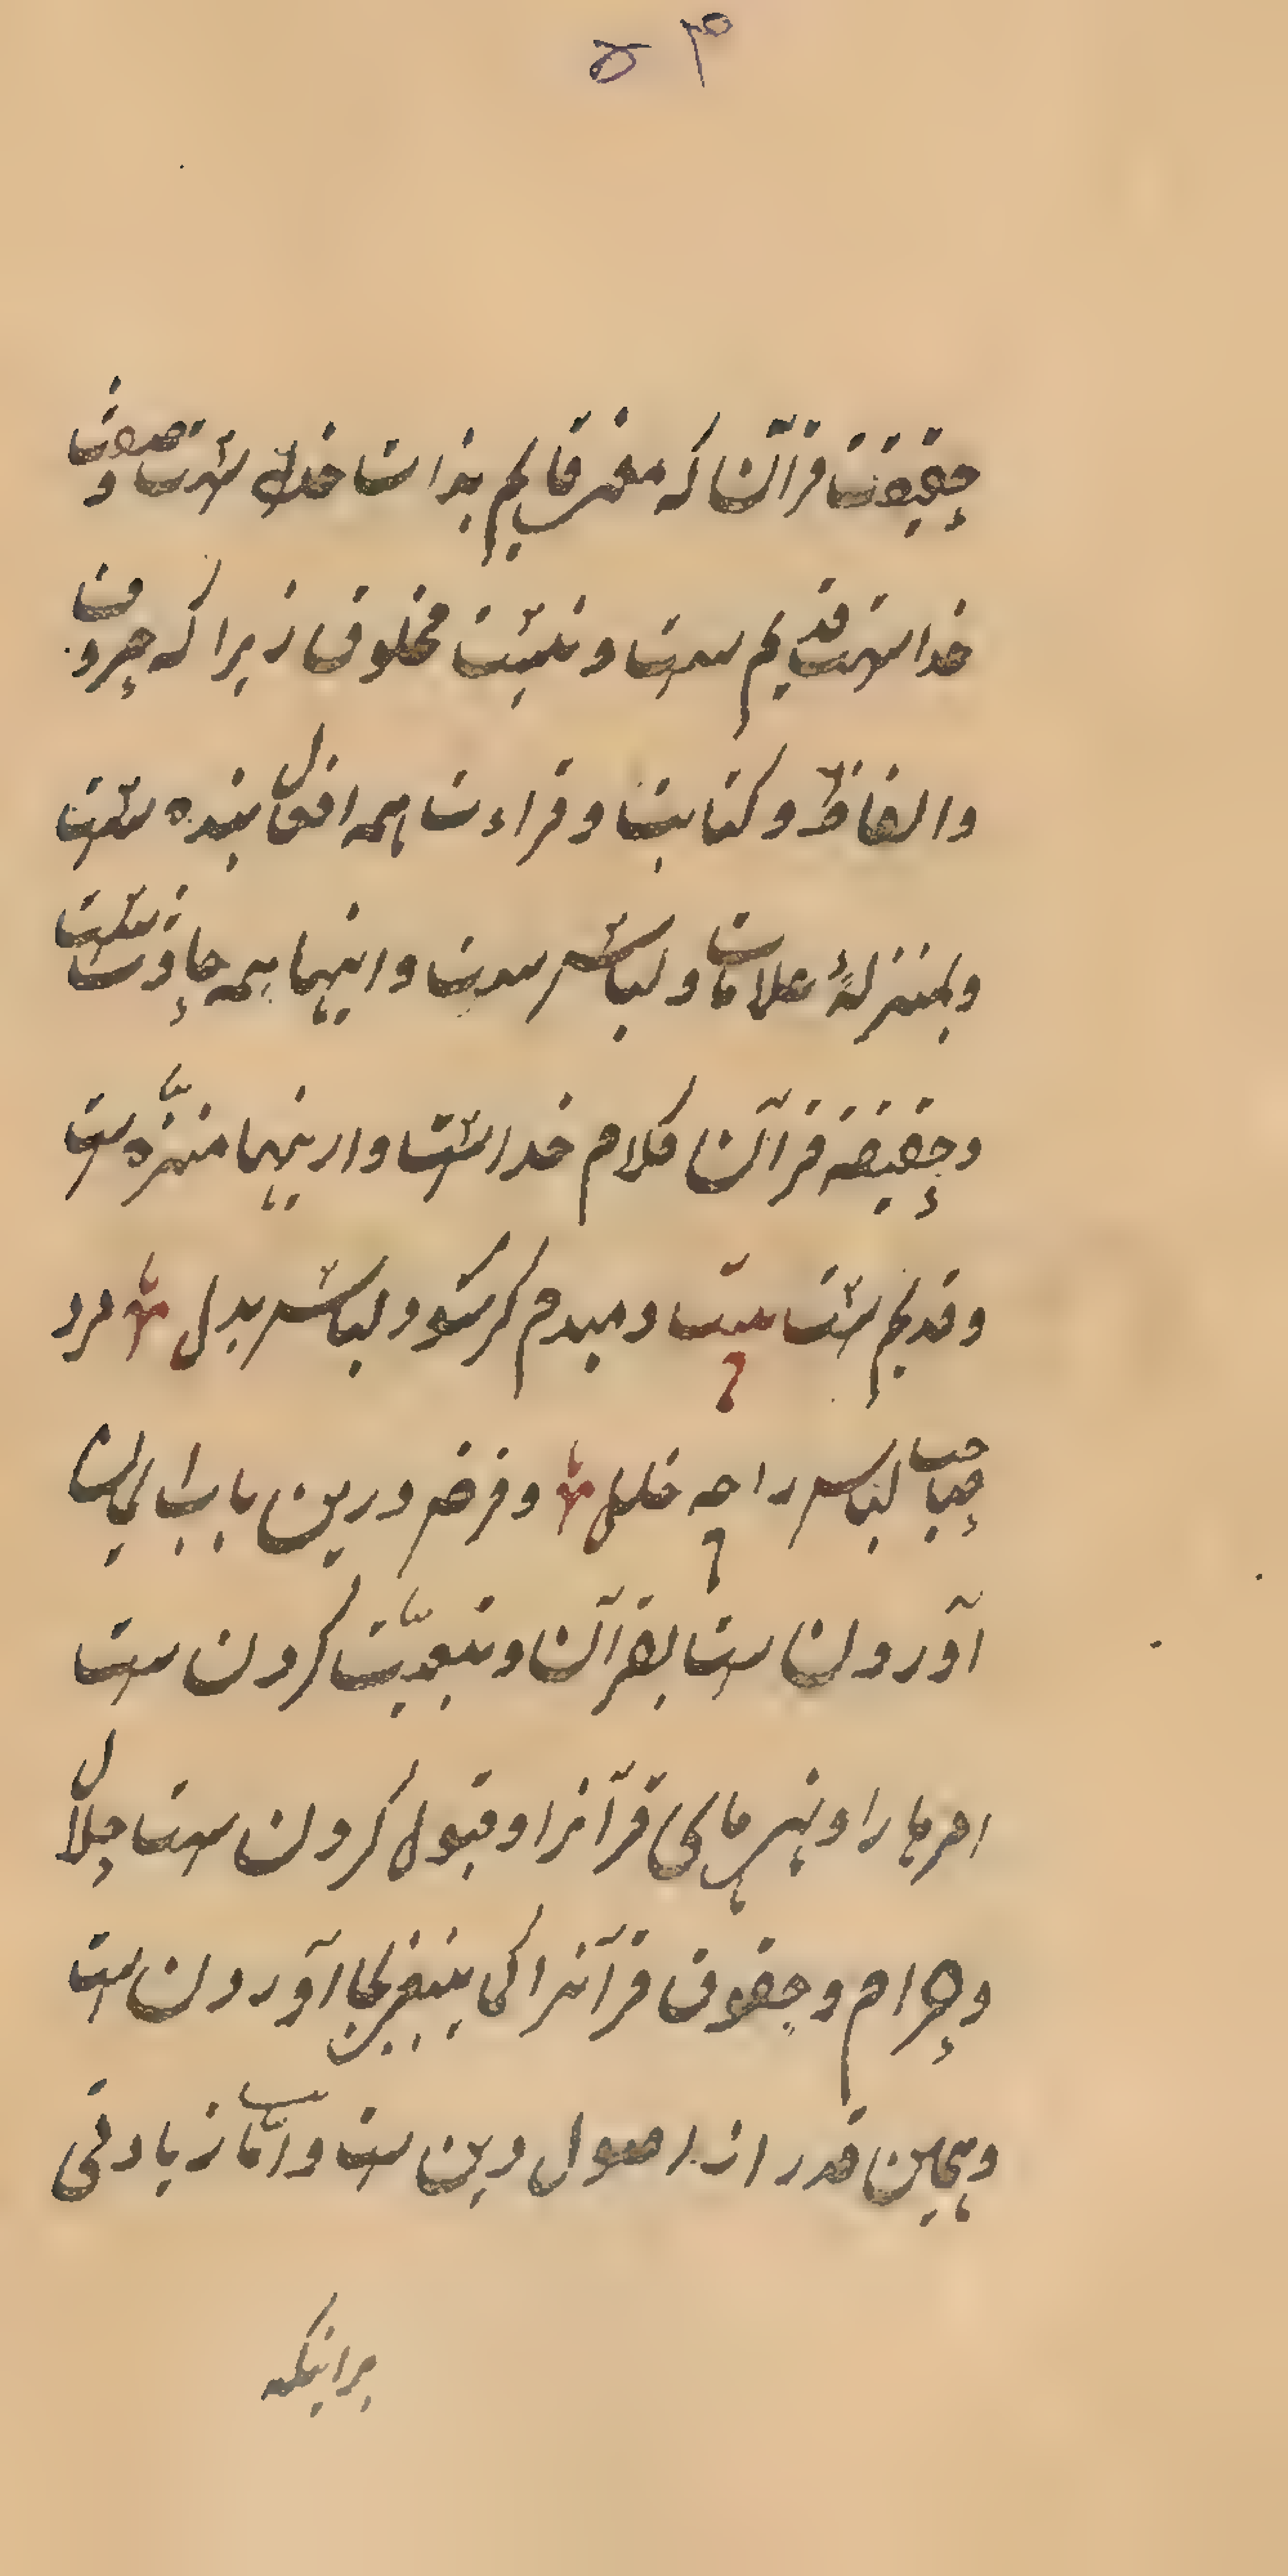 ۵۳
حقیقت قرآن که معنی قایم بذات خدای ست و صوت
خداست قدیم ست و نیست مخلوق زیرا که حروف
والفاظ و کتابت و قراءت همه افعال بنده ست
و بمنزلهٔ علامات و لباس ست و اینها همه حادث ست
و حقیقة قرآن کلام خداست و ازینها منزّه ست
و قدیم ست بیت دمبدم گر شود لباس بدل ؛ مرد
صاحب لباس را چه خلل ؛ و فرض درین باب ایمان
آوردن ست بقرآن و تبعیّت کردن ست
امرها را و نهی های قرآنرا و قبول کردن ست حلال
و حرام و حقوق قرآنرا کی بیقین بجا آوردن ست
و همین قدر از اصول دین ست و امّا زیادتی
برانیکه